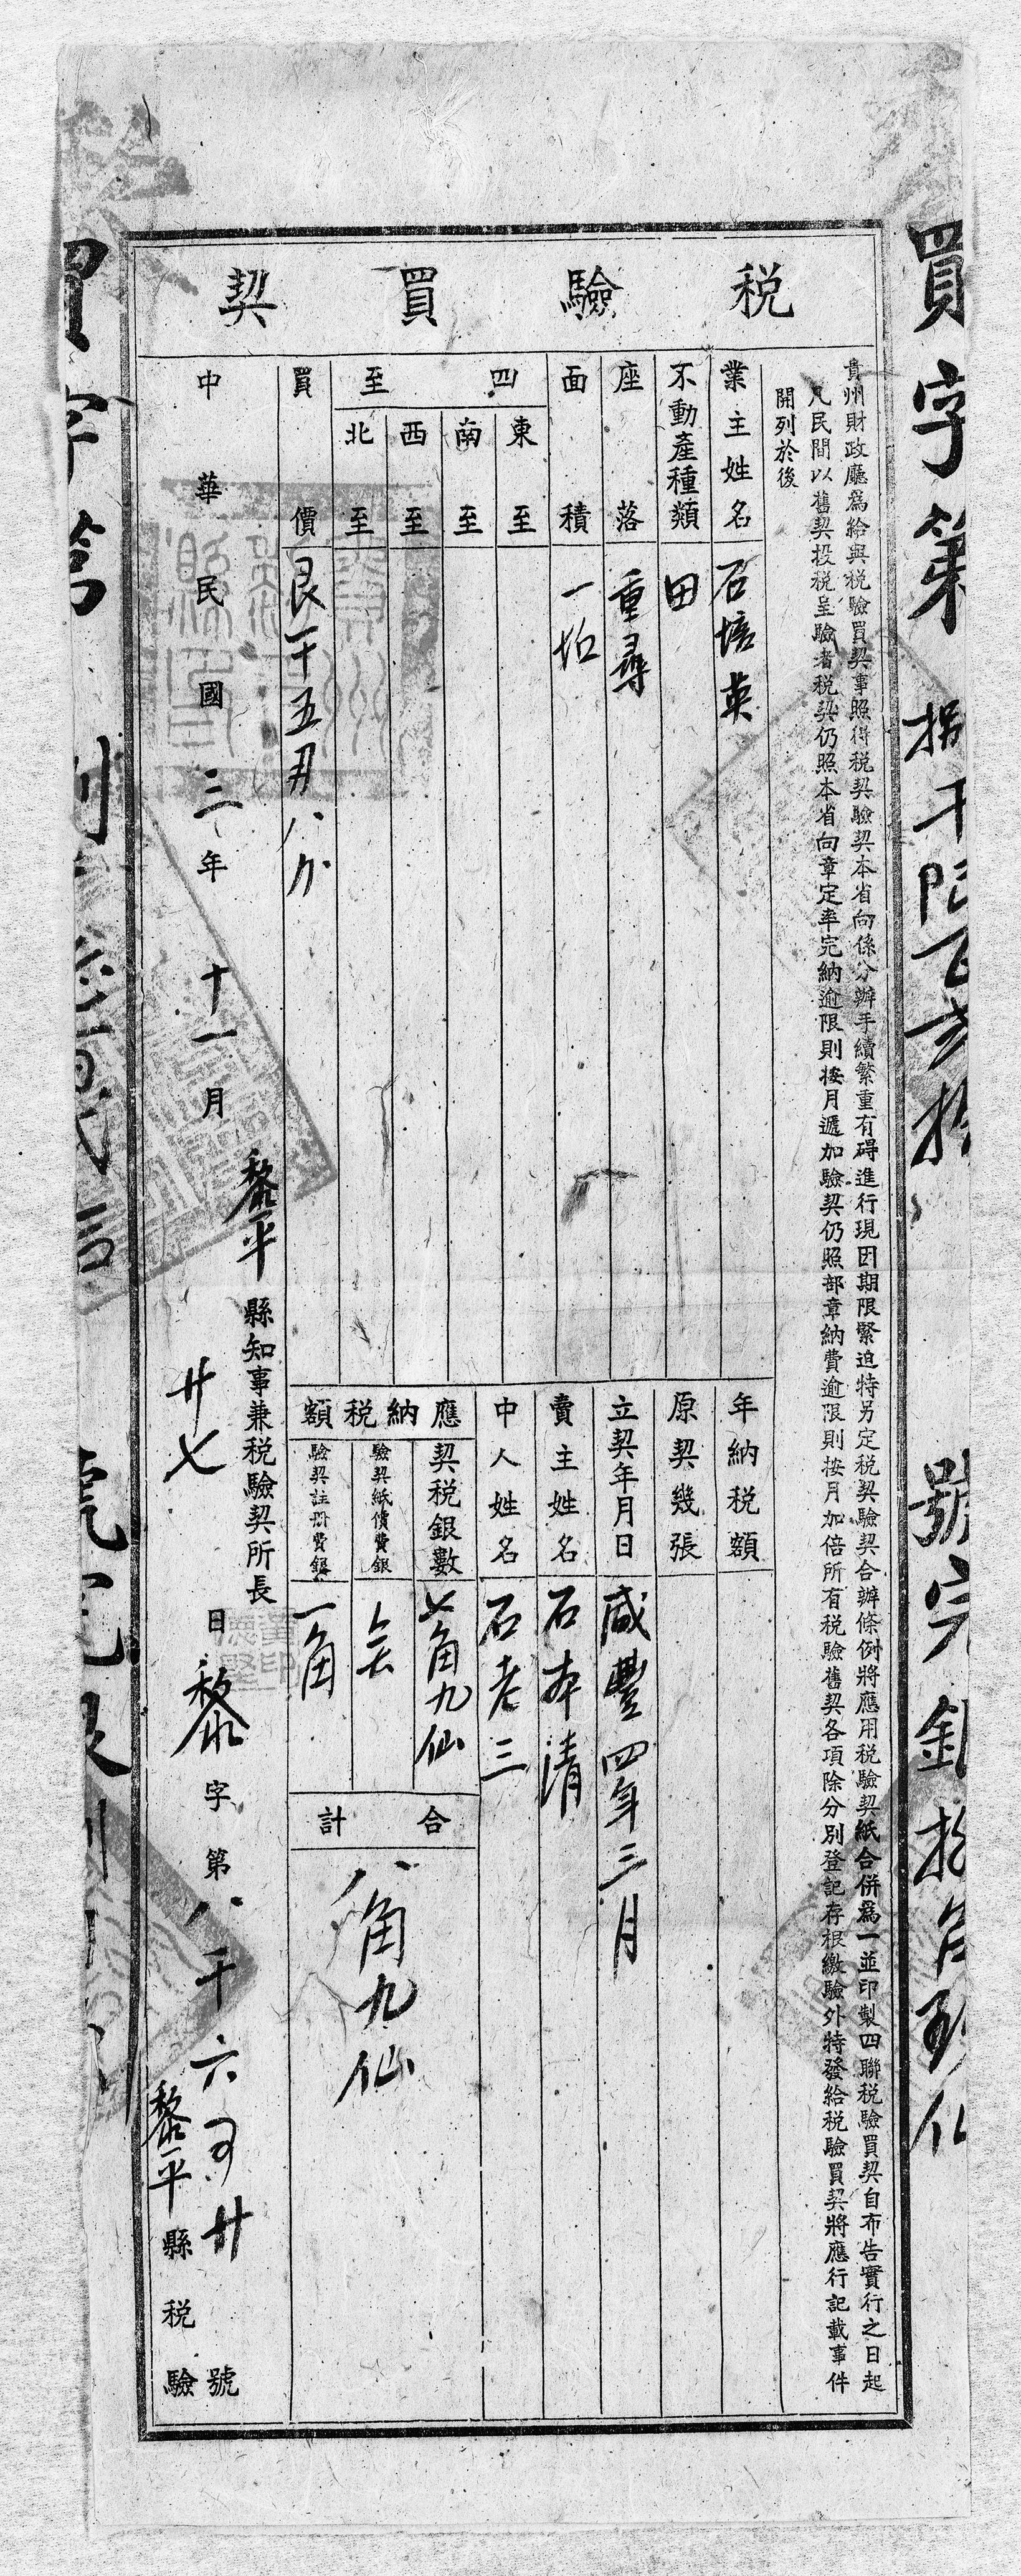 買字第捌千陆百贰拾
號完
税驗買契
貴州財政廳爲給與税驗買契事照得税契驗契本省向係分辦手續繁重有碍進行現因期限緊迫特另定税契驗契合辦條例將應用税驗契紙合併爲一並印製四聯税驗買契自布告實行之日起
凡民間以舊契投税呈驗者税契仍照本省向章定率完納逾限則按月遞加驗契仍照部章納費逾限則按月加倍所有税驗舊契各項除分別登記存根繳驗外特發給税驗買契將應行記載事件
開列於後
業主姓名 石培英
不動產種類 田
座落 重尋
面積 一坵
四至
東至
南至
西至
北至
買價 艮一千五 八分
年納税額
原契幾張
立契年月日 咸豐四年三月
賣主姓名 石本清
中人姓名 石老三
應納税額
契税銀數 七角九仙
驗契紙價費銀 无
驗契註册費銀 一角
合計
八角九仙
黎平縣知事兼税驗契所長
中華民國三年十一月廿七日黎字第八千六百廿號
黎平縣税驗